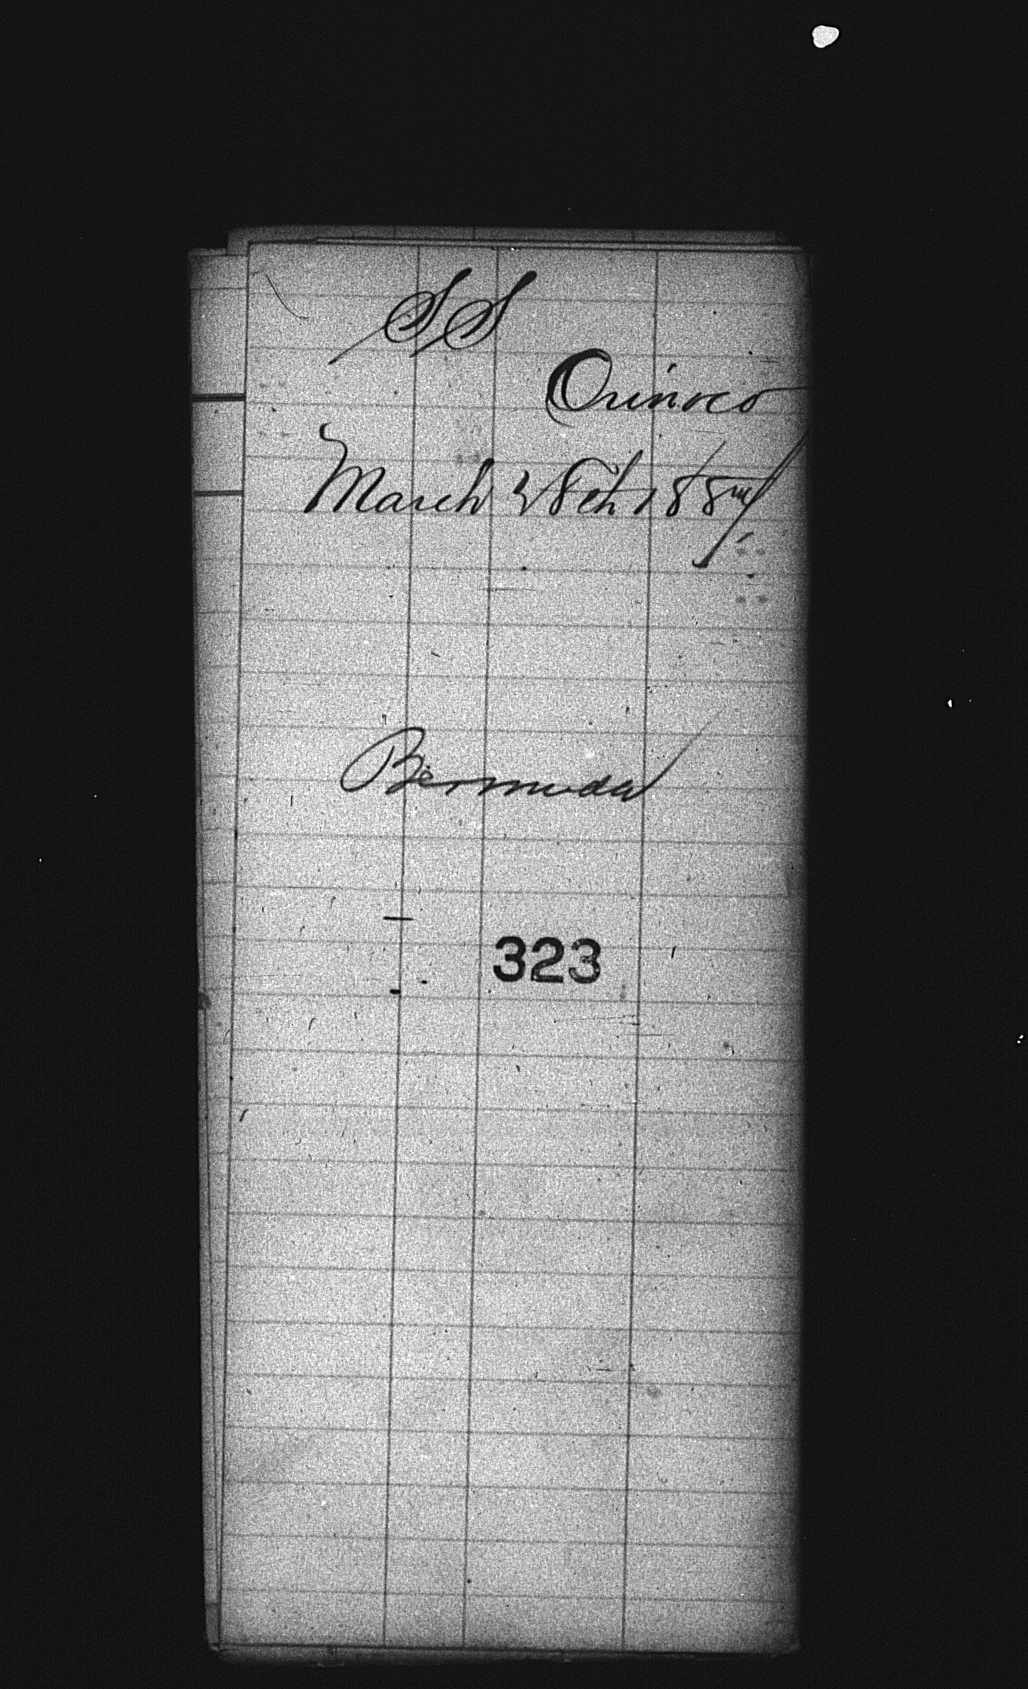 SS
Orinoco
March 28th 1887
Bermuda
323